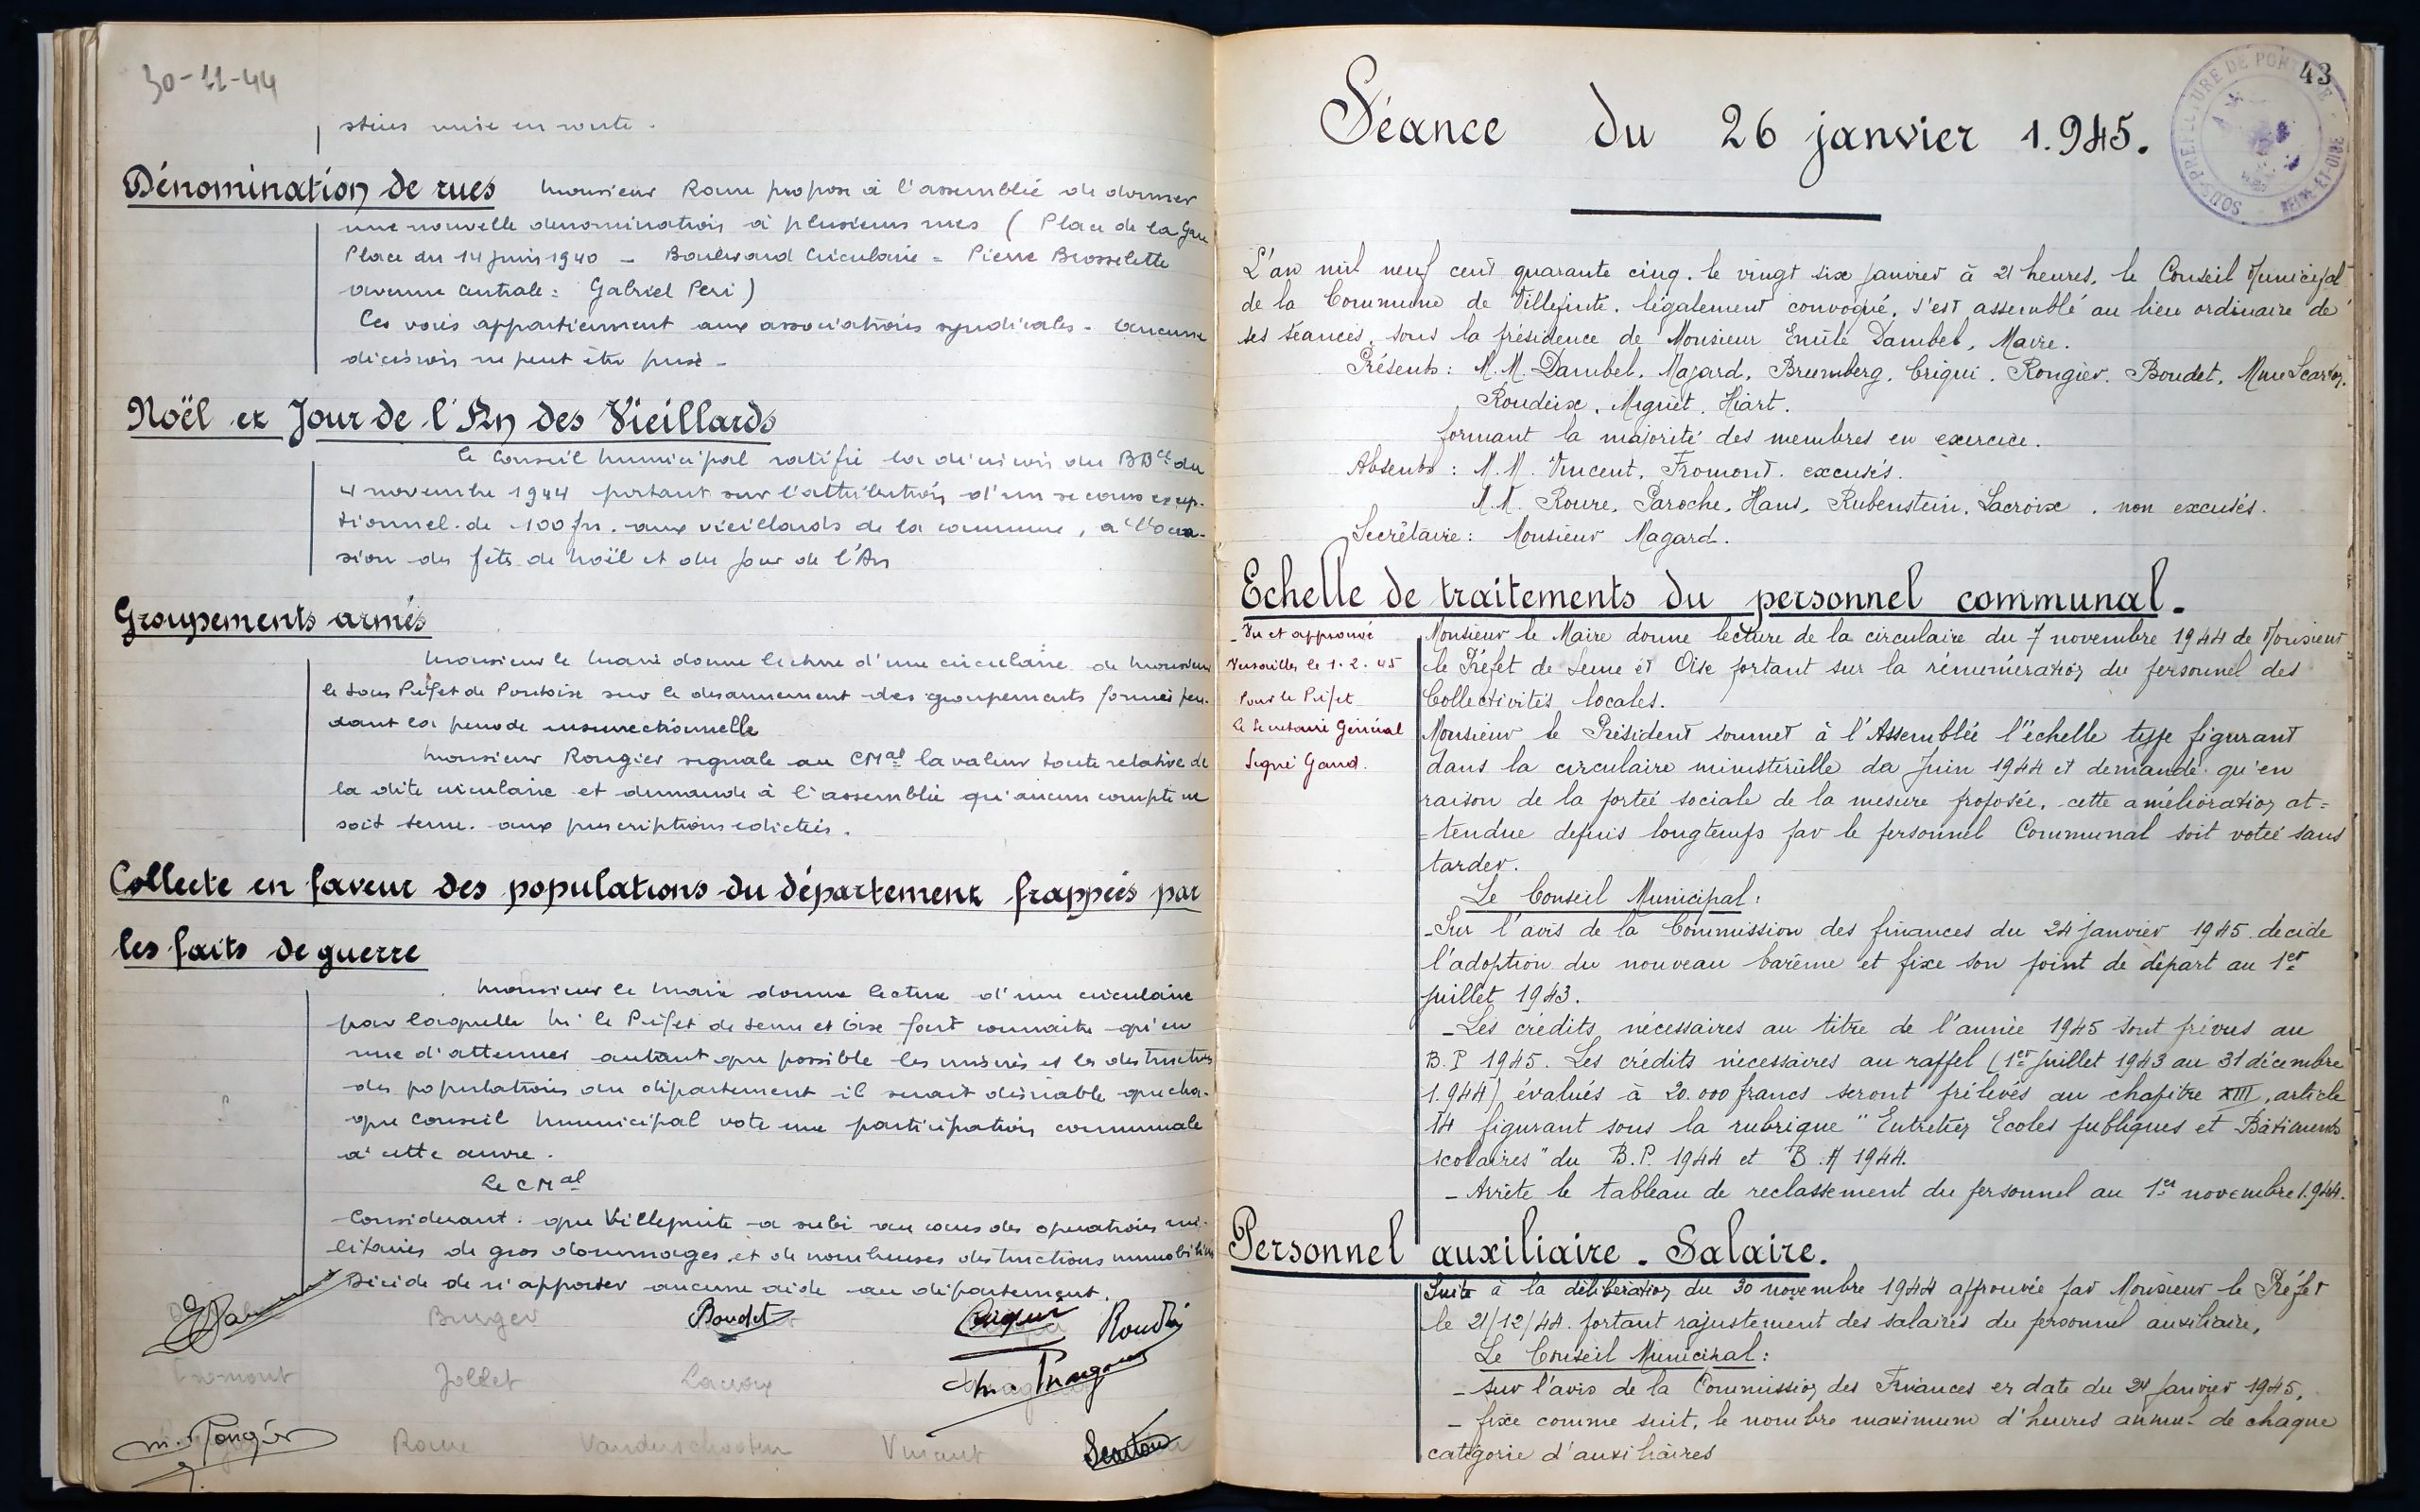 30-11-44
mise en route.
Dénomination de rues Monsieur Roure propose à l'assemblée de donner
une nouvelle dénomination à plusieurs rues (Place de la Gare
Place du 14 juin 1940 - Boulevard Circulaire = Pierre Brosselette
avenue Centrale = Gabriel Peri)
Ces voies appartiennent aux associations syndicales - aucune
décision ne peut être prise -
Noël et Jour de l'An des Vieillards
Le Conseil Municipal ratifie la décision du BB du
4 novembre 1944 portant sur l'attribution d'un secours excep-
tionnel de 100 frs. aux vieillards de la commune, à l'occa-
sion des fêtes de Noël et du Jour de l'An
Groupements armés
Monsieur le Maire donne lecture d'une circulaire de Monsieur
le Sous Préfet de Pontoise sur le désarmement des groupements formés pen-
dant la période insurrectionnelle
Monsieur Rougier signale au CMal la valeur toute relative de
la dite circulaire et demande à l'assemblée qu'aucun compte ne
soit tenu aux prescriptions édictées.
Collecte en faveur des populations du département frappées par
les faits de guerre
Monsieur le Maire donne lecture d'une circulaire
par laquelle Mr le Préfet de Seine et Oise fait connaître qu'en
vue d'atténuer autant que possible les misères et les destructions
des populations du département il serait désirable que cha-
que Conseil Municipal vote une participation communale
à cette œuvre.
Le CMal
Considerant que Villepinte a subi au cours des opérations mi-
litaires de gros dommages et de nombreuses destructions immobilières
Décide de n'apporter aucune aide au département.
Burger Boudet Criqui Roudeix
Fromont Jollet Lacroix Magard
M. Rougier Roure Vanderschooten Vincent Scarton
43
SOUS-PRÉFECTURE DE PONTOISE SEINE-ET-OISE
Séance du 26 janvier 1.945.
L'an mil neuf cent quarante cinq. le vingt six janvier à 21 heures, le Conseil Municipal
de la Commune de Villepinte. légalement convoqué, s'est assemblé au lieu ordinaire de
ses séances, sous la présidence de Monsieur Emile Dambel, Maire.
Présents : M.M. Dambel. Magard, Brumberg, Criqui. Rougier. Boudet, Mme Scarton,
Roudeix, Miguet. Hiart.
formant la majorité des membres en exercice.
Absents : M.M. Vincent, Fromont. excusés.
M.M. Roure, Paroche, Hans, Rubenstein, Lacroix. non excusés.
Secrétaire : Monsieur Magard.
Echelle de traitements du personnel communal.
- Vu et approuvé
Versailles le 1.2.45
Pour le Préfet
Le Secrétaire Général
Signé Gaud.
Monsieur le Maire donne lecture de la circulaire du 7 novembre 1944 de Monsieur
le Préfet de Seine et Oise portant sur la rémunération du personnel des
Collectivités locales.
Monsieur le Président soumet à l'Assemblée l'échelle type figurant
dans la circulaire ministérielle da Juin 1944 et demande qu'en
raison de la portée sociale de la mesure proposée, cette amélioration at=
=tendue depuis longtemps par le personnel Communal soit votée sans
tarder.
Le Conseil Municipal :
- Sur l'avis de la Commission des finances du 24 janvier 1945 decide
l'adoption du nouveau barême et fixe son point de départ au 1er
juillet 1943.
- Les crédits nécessaires au titre de l'année 1945 sont prévus au
B.P 1945. Les crédits nécessaires au rappel (1er Juillet 1943 au 31 décembre
1.944) évalués à 20.000 francs seront prélevés au chapitre XIII, article
14 figurant sous la rubrique "Entretien Ecoles publiques et Bâtiments
scolaires" du B.P. 1944 et B.A 1944.
- Arrête le tableau de reclassement du personnel au 1er novembre 1.944.
Personnel auxiliaire. Salaire.
Suite à la délibération du 30 novembre 1944 approuvée par Monsieur le Préfet
le 21/12/44. portant rajustement des salaires du personnel auxiliaire,
Le Conseil Municipal :
- sur l'avis de la Commission des Finances en date du 24 Janvier 1945,
- fixe comme suit, le nombre maximum d'heures annuel de chaque
catégorie d'auxiliaires